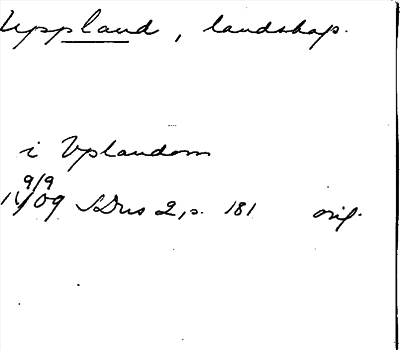 Uppland, landskap.
i Vplandom
9/9
14/09 SDns 2, s. 181 orig.